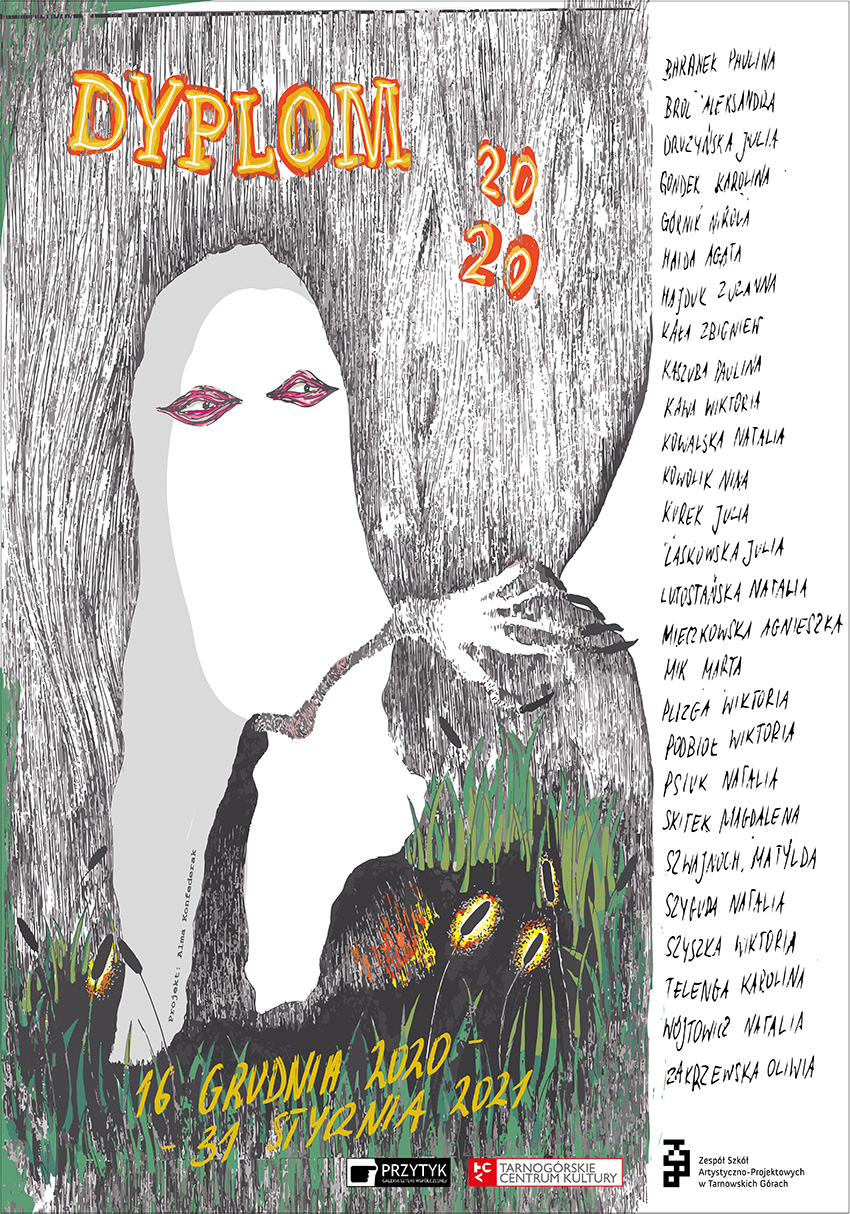 DYPLOM
20
20
BARANEK PAULINA
BROL ALEKSANDRA
DRUZYŃSKA JULIA
GONDEK KAROLINA
GÓRNIK NIKOLA
HAIDA AGATA
HAJDUK ZUZANNA
KAŁA ZBIGNIEW
KASZUBA PAULINA
KAWA WIKTORIA
KOWALSKA NATALIA
KOWOLIK NINA
KUREK JULIA
LASKOWSKA JULIA
LUTOSTAŃSKA NATALIA
MIECZKOWSKA AGNIESZKA
MIK MARTA
PLIZGA WIKTORIA
PODBIOŁ WIKTORIA
PSIUK NATALIA
SKITEK MAGDALENA
SZWAJNOCH, MATYLDA
SZYGUDA NATALIA
SZYSZKA WIKTORIA
TELENGA KAROLINA
WÓJTOWICZ NATALIA
ZAKRZEWSKA OLIWIA
Projekt: Alma Konfederak
16 GRUDNIA 2020 -
- 31 STYCZNIA 2021
PRZYTYK
GALERIA SZTUKI WSPÓŁCZESNEJ
TARNOGÓRSKIE
CENTRUM KULTURY
Zespół Szkół
Artystyczno-Projektowych
w Tarnowskich Górach